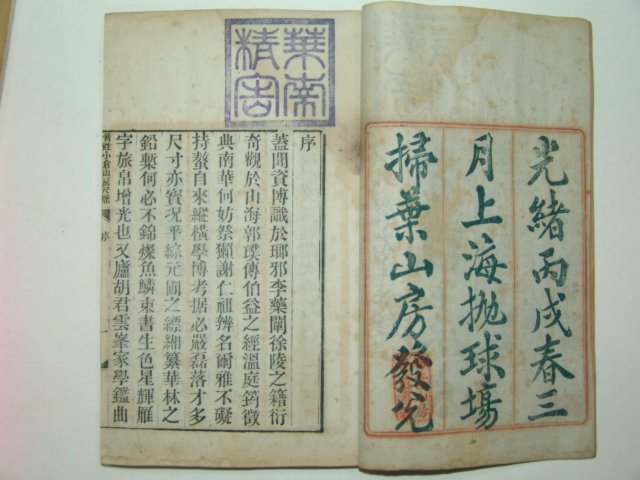 光緒丙戌春三
月上海拋球塲
掃葉山房發兌
華南
精舍
序
蓋聞資博識於瑯邪李藥闡徐陵之籍衍
奇觀於山海郭璞傳伯益之經溫庭筠徵
典南華何妨祭獺謝仁祖辨名爾雅不礙
持螯自來縱橫學博考据必嚴磊落才多
尺寸亦寶況乎綜元圃之縹緗纂華林之
鉛槧何必不錦燦魚鱗束書生色星輝雁
字旅帛增光也又廬胡君雲峯家學鑑曲
小倉山房尺牘
序